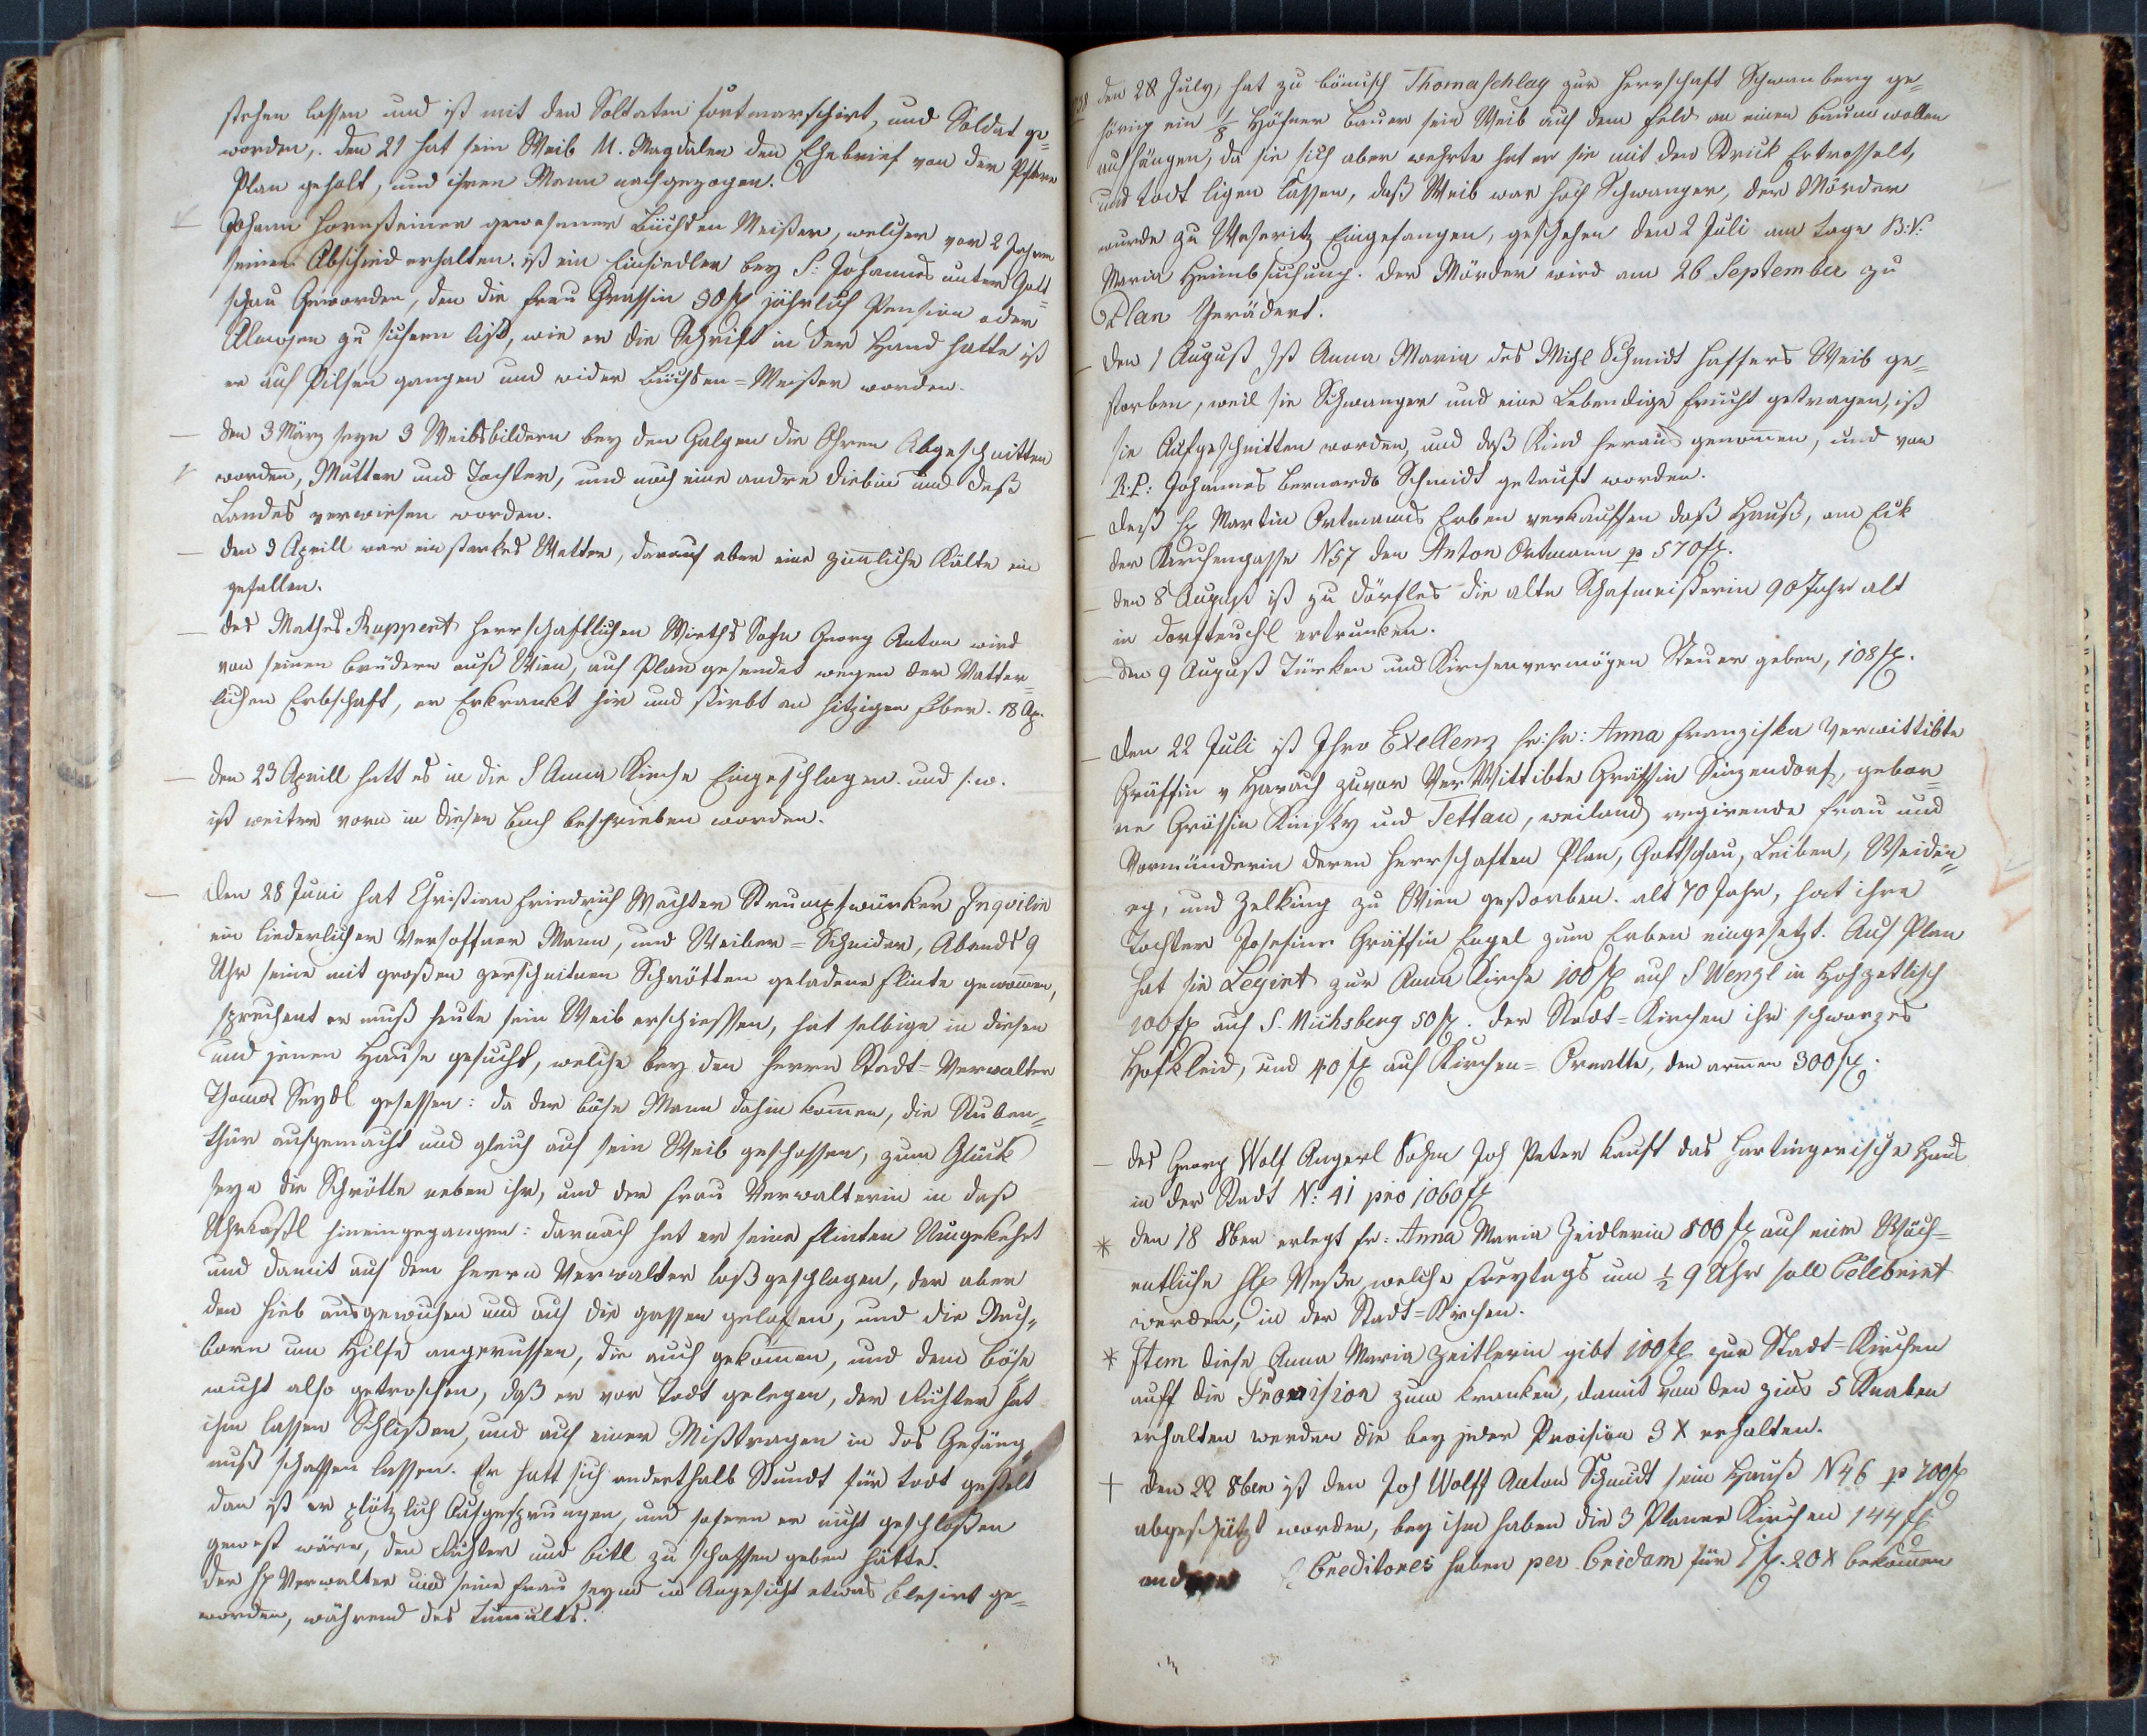 stehen lassen und ist mit den Soldaten fortmarschirt, und Soldat ge=
worden,. den 21 hat sein Weib M. Magdalen den Ehebrief von der Pfarr
Plan geholt, und ihren Mann nachgezogen.
Johann Hornsteiner gewesener Büchsen Meister, welcher vor 2 Jahren
seinen Abschied erhalten. ist ein Einsiedler bey S: Johannes unter Gott=
schau Geworden, den die Frau Gräffin 30 fl jährlich Pension oder
Almosen zu sichern ließ, wie er die Schrift in der Hand hatte ist
er auf Pilsen gangen und wider Büchsen=Meister worden.
— den 3 März seyn 3 Weibsbildern bey den Galgen die Ohren Abgeschnitten
worden, Mutter und Tochter, und noch eine andre Diebin und deß
Landes verwiesen worden.
— den 9 Aprill war ein starkes Wetter, darauf aber eine zimliche Kälte ein
gefallen.
— des Mathes Ruppert herrschaftlichen Wirths Sohn Georg Anton wird
von seinen Brüdern auß Wien, auf Plan gesendet wegen der Vatter=
lichen Erbschaft, er Erkrankt hir und stirbt an hitzigen Fieber. 18 Ap.
— den 23 Aprill hatt es in die S Anna Kirche Eingeschlagen. und s.w.
ist weiter vorn in diesen Buch beschrieben worden.
— den 28 Juni hat Christian Friedrich Wachter Strumpfwürker Inquilin
ein liederlicher Versoffner Mann, und Weiber=Schneider, Abends 9
Uhr seine mit großen zerschnitnen Schrötten geladene Flinte genommen,
sprechent er muß heute sein Weib erschiessen, hat selbige in diesen
und jenen Hause gesucht, welche bey den Herrn Stadt=Verwalter
Thomas Seydl gesessen: da der böse Mann dahin kommen, die Stuben=
thür aufgemacht und gleich auf sein Weib geschossen, zum Glück
seyn die Schrötte neben ihr, und der Frau Verwalterin in daß
Uhrkastl hineingegangen: darnach hat er seine Flinten Umgekehrt
und damit auf dem Herrn Verwalter loßgeschlagen, der aber
den Hieb ausgewichen und auf die gassen gelofen, und die Nach=
barn um Hilfe angeruffen, die auch gekommen, und dem Böse
wicht also getroschen, daß er vor todt gelegen, der Richter hat
ihm lassen Schlißen, und auf einer Misttragen in das Gefäng
nuß schaffen lassen. Er hatt sich anderthalb Stundt für todt gestelt
dan ist er plötzlich Aufgesprungen, und sofern er nicht geschloßen
gewest wäre, den Richter und bitl zu schaffen geben hätte.
der H Verwalter und seine Frau seynd in Angesicht etwas blesirt ge=
worden, während des tumults.
den 28 July, hat zu böhmisch Thomaschlag zur Herrschaft Schwanberg ge=
hörig ein 1/8 Höfner Bauer sein Weib auf dem Feld an einen Baum wollen
aufhängen, da sie sich aber wehrte hat er sie mit den Strick Ertrosselt,
und todt ligen lassen, daß Weib war hoch Schwanger, der Mörder
wurde zu Weseritz Eingefangen, geschehen den 2 Juli am Tage B:V:
Maria Heimbsuchung. der Mörder wird am 26 September zu
Plan Gerädert.
— den 1 August Ist Anna Maria des Michl Schmidt Haffers Weib ge=
storben, weil sie Schwanger und eine Lebendige Frucht getragen, ist
sie Aufgeschnitten worden, und daß Kind heraus genommen, und von
R.P: Johannes Bernardo Schmidt getauft worden.
— deß H Martin Ortmanns Erben verkauffen daß Hauß, am Eck
der Kirchengasse N57 den Anton Ortmann p 570 fl.
— den 8 August ist zu Dörfles die alte Schafmeisterin 90 Jahr alt
in dorfteichl ertrunken.
— den 9 August Türken und Kirchenvermögen Steuer geben, 108 fl.
— den 22 Juli ist Ihro Exellenz Fr:Fr: Anna Franziska Verwittibte
Gräffin v Harach zuvor Ver Wittibte Gräffin Sinzendorf, gebor=
ne Gräffin Kinsky und Tettau, weiland regirende Frau und
Vormünderin deren Herrschaften Plan, Gottschau, Leiben, Weiden=
eg, und Zelking zu Wien gestorben. alt 70 Jahr, hat ihre
Tochter Josefine Gräffin Engel zum Erben eingesetzt. Auf Plan
hat sie Legirt zur Anna Kirche 100 fl auf S Wenzl in Hohzetlisch
100 fl auf S. Michsberg 50 fl. der Stadt=Kirchen ihr schwarzes
HofKleid, und 40 fl auf Kirchen=Ornatte, den armen 300 fl.
— des Georg Wolf Angerl Sohn Joh Peter Kauft das Hartingerische Haus
in der Stadt N: 41 pro 1060 fl
* den 18 8ber erlegt Fr: Anna Maria Zeidlerin 800 fl auf eine Wöch=
entliche Hl Meße welche Freytags um ½ 9 Uhr soll Celebrirt
werden, in der Stadt=Kirchen.
* Item diese Anna Maria Zeitlerin gibt 100 fl zur Stadt=Kirchen
auff die Provision zum kranken, damit von den zins 5 Knaben
erhalten werden die bey jeder Proision 3 X erhalten.
+ den 22 8ber ist den Joh Wolff Anton Schmidt sein Hauß N46 p 700 fl
abgeschätzt worden, bey ihm haben die 3 Planer Kirchen 144 fl
andere Creditores haben per Cridam für 1 fl. 20 X bekommen